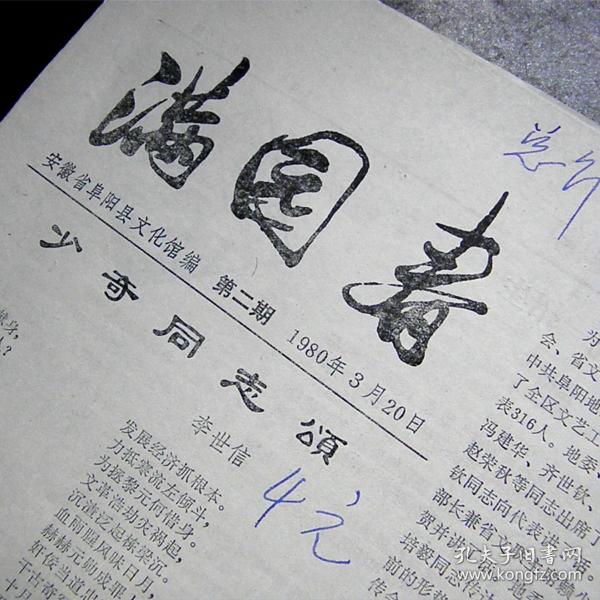 满园春
安徽省阜阳县文化馆编 第二期 1980年3月20日
少奇同志颂
李世信
发展经济抓根本。
力抵寒流左倾头,
为拯黎元何惜身。
文革浩劫灾祸起,
沉渣泛起栋梁沉。
血雨腥风昧日月,
赫赫元勋成罪
奸佞当道
千古奇
十月
献身,
人?
为
会、省文
中共阜阳地
了全区文艺工
表316人。地委、
冯建华、齐世钦、
赵荣秋等同志出席了
钦同志向代表讲了话。
部长兼省文
贺并讲
培毅同志传达
前的形势
传会
4元
孔夫子旧书网
www.kongfz.com